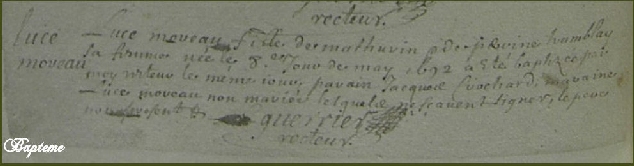 recteur.
luce moveau
Luce moveau fille de mathurin & de perine tramblay
sa femme née le 8.e Jour de may 1692 a Eté baptizée par
moy recteur le meme jour, parain Jacque Crochard, maraine
Luce moveau non mariée lesquels ne scavent signer, le pere
non present &
guerrier
recteur.
Bapteme